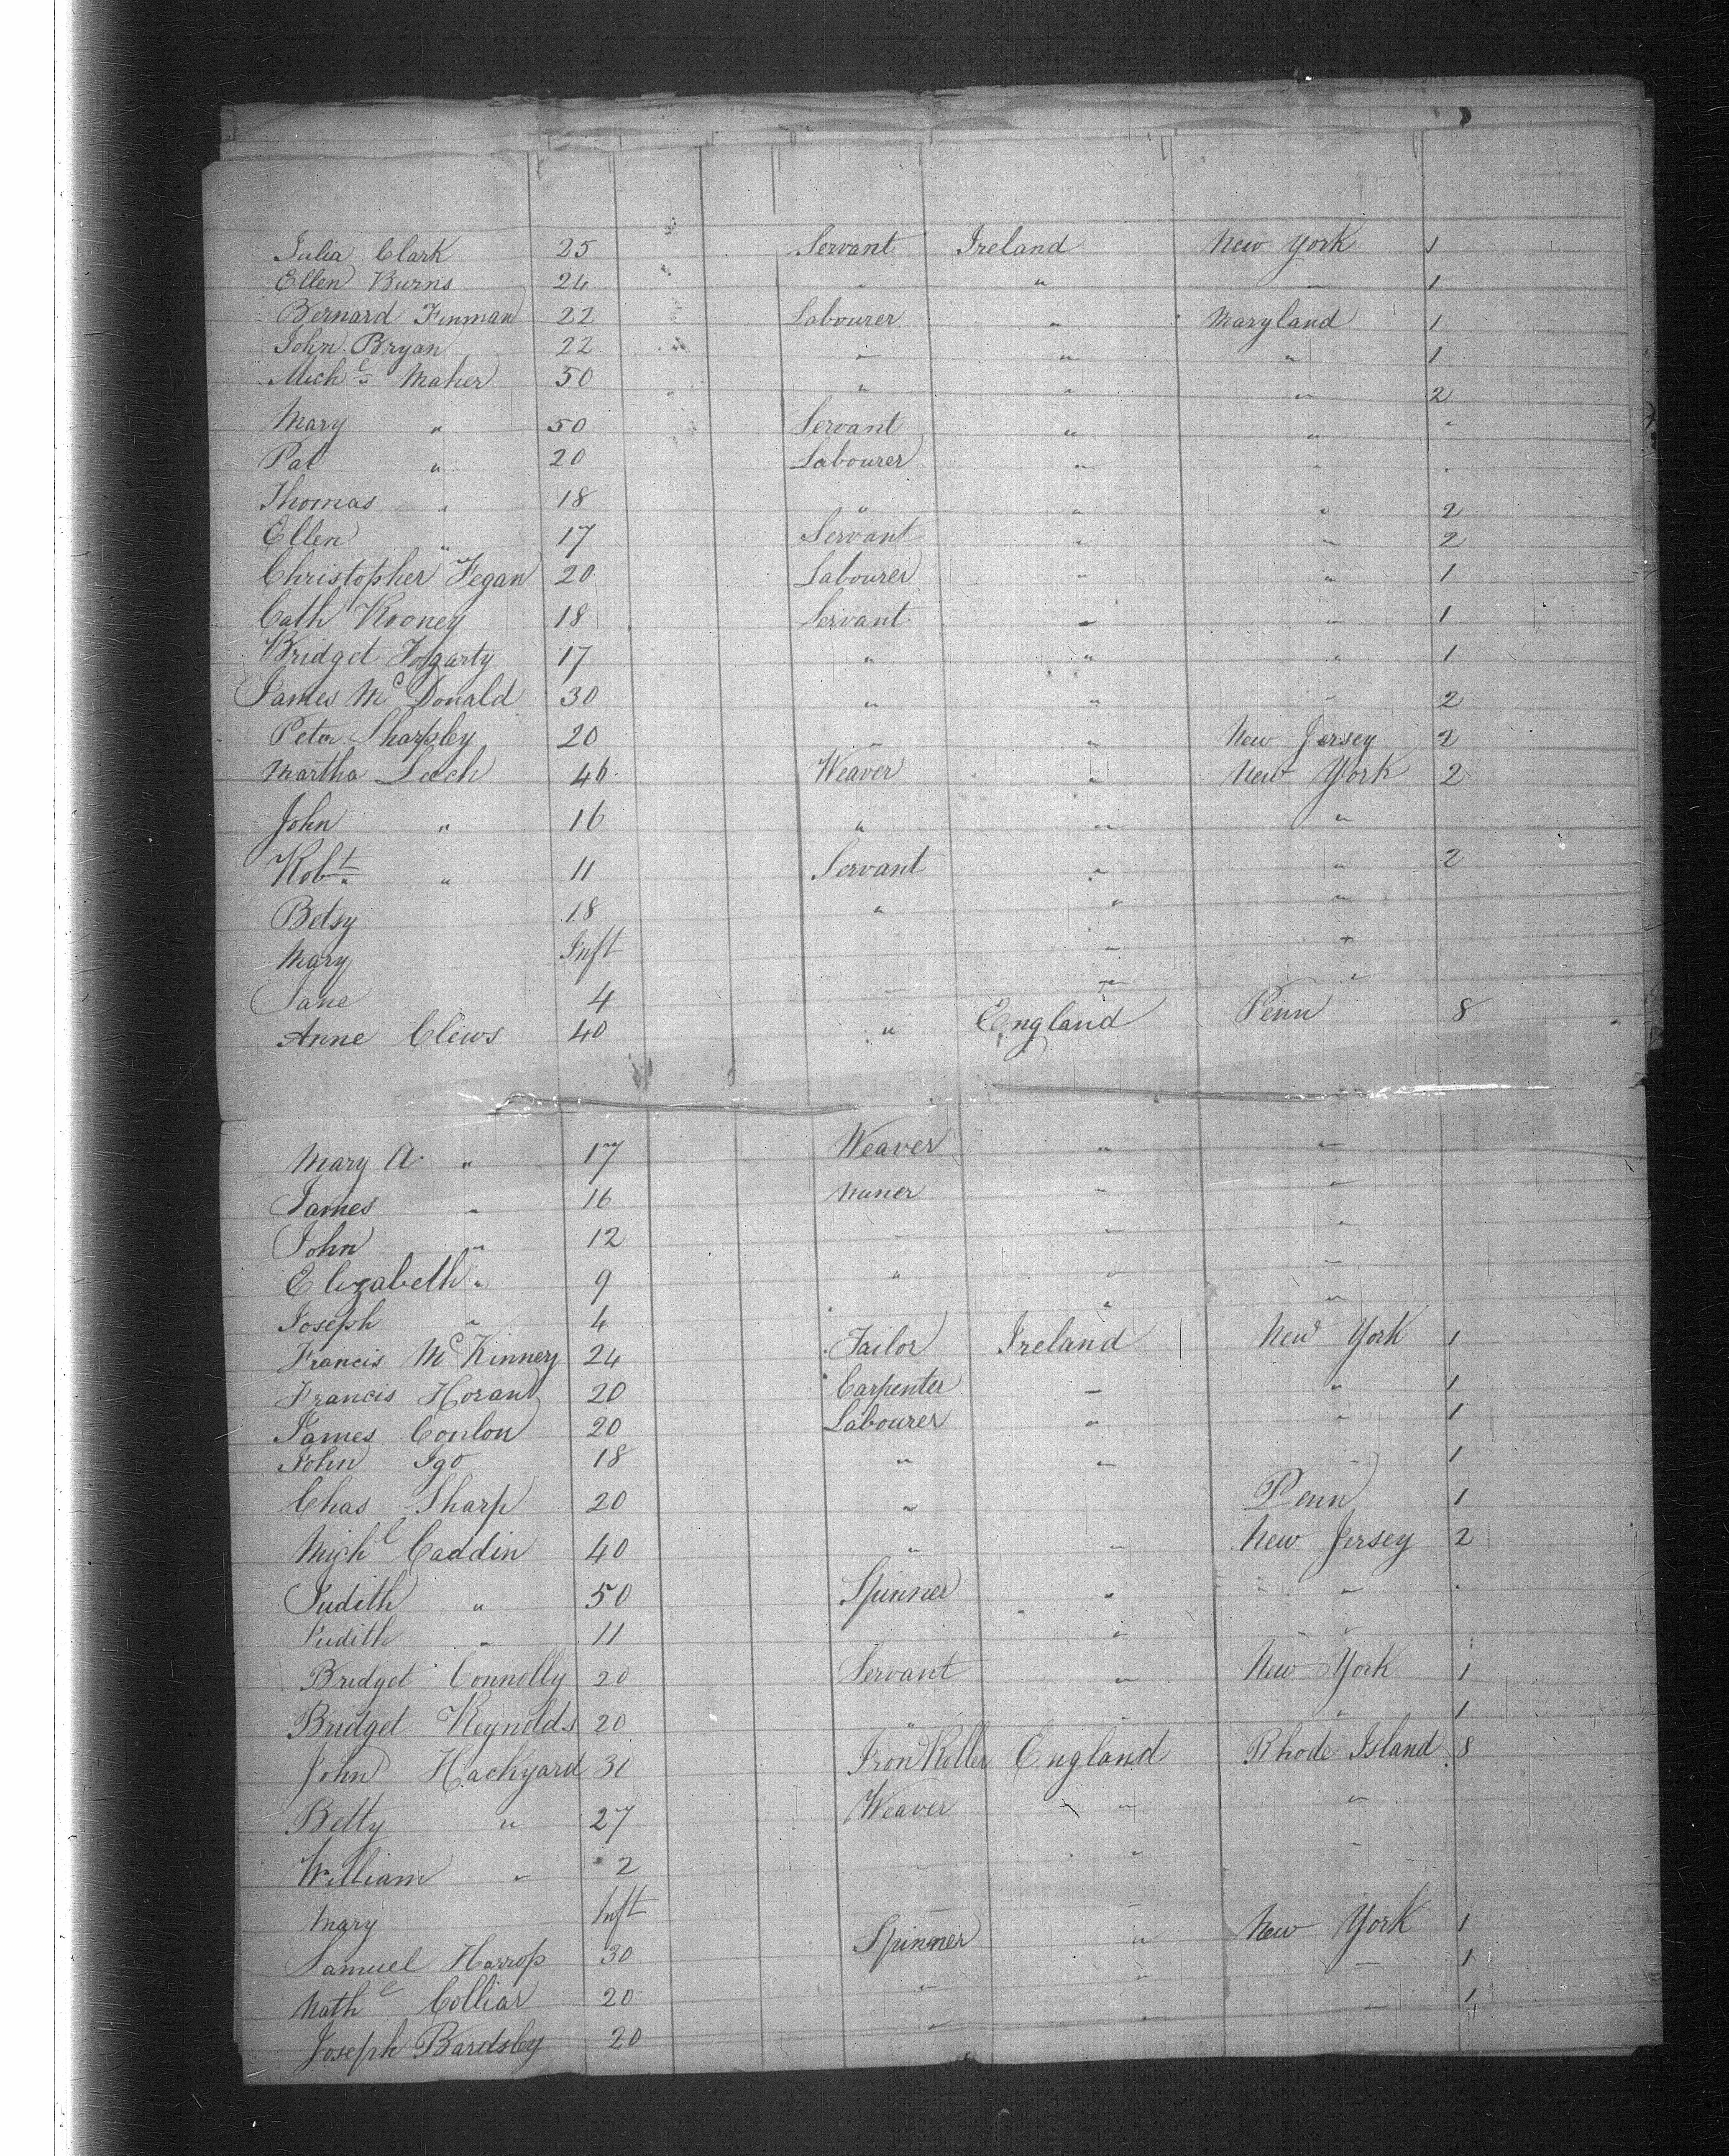 Julia Clark 25 Servant Ireland New York 1
Ellen Burns 24 " " " 1
Bernard Finman 22 Labourer " Maryland 1
John Bryan 22 " " " 1
Michl Maher 50 " " " 2
Mary " 50 Servant " " "
Pat " 20 Labourer " " "
Thomas " 18 " " " 2
Ellen " 17 Servant " " 2
Christopher Fegan 20 Labourer " " 1
Cath Rooney 18 Servant " " 1
Bridget Fogarty 17 " " " 1
James McDonald 30 " " " 2
Peter Sharpley 20 " " New Jersey 2
Martha Leech 46 Weaver " New York 2
John " 16 " " "
Robt " 11 Servant " " 2
Betsy 18 " " "
Mary Inft " "
Jane 4 " " "
Anne Clews 40 " England Penn 8
Mary A. " 17 Weaver " "
James " 16 Miner " "
John " 12 " " "
Elizabeth " 9 " " "
Joseph " 4 " "
Francis McKinney 24 Tailor Ireland New York 1
Francis Horan 20 Carpenter " " 1
James Conlon 20 Labourer " " 1
John Igo 18 " " " 1
Chas Sharp 20 " Penn 1
Michl Caddin 40 " " New Jersey 2
Judith " 50 Spinner " " "
Judith " 11 " "
Bridget Connolly 20 Servant " New York 1
Bridget Reynolds 20 " " " 1
John Hackyard 30 Iron Roller England Rhode Island 8
Betty " 27 Weaver " "
William " 2 " " "
Mary Inft " "
Samuel Harrop 30 Spinner " New York 1
Nathl Colliar 20 " " " 1
Joseph Bardsley 20 " " " 1